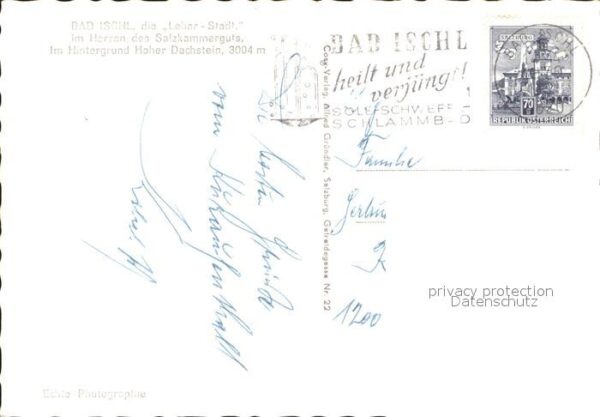 BAD ISCHL, die „Lehar-Stadt"
im Herzen des Salzkammerguts.
Im Hintergrund Hoher Dachstein, 3004 m
BAD ISCHL
heilt und
verjüngt!
SOLE-SCHWEFEL
SCHLAMMB
70
REPUBLIK ÖSTERREICH
Cosy-Verlag, Alfred Gründler, Salzburg, Getreidegasse Nr. 22
Die besten Grüße
vom Kuraufenthalt
Familie
1200
privacy protection
Datenschutz
Echte Photographie